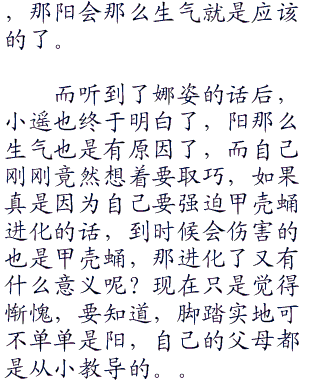 ，那阳会那么生气就是应该
的了。
而听到了娜姿的话后，
小遥也终于明白了，阳那么
生气也是有原因了，而自己
刚刚竟然想着要取巧，如果
真是因为自己要强迫甲壳蛹
进化的话，到时候会伤害的
也是甲壳蛹，那进化了又有
什么意义呢？现在只是觉得
惭愧，要知道，脚踏实地可
不单单是阳，自己的父母都
是从小教导的。。